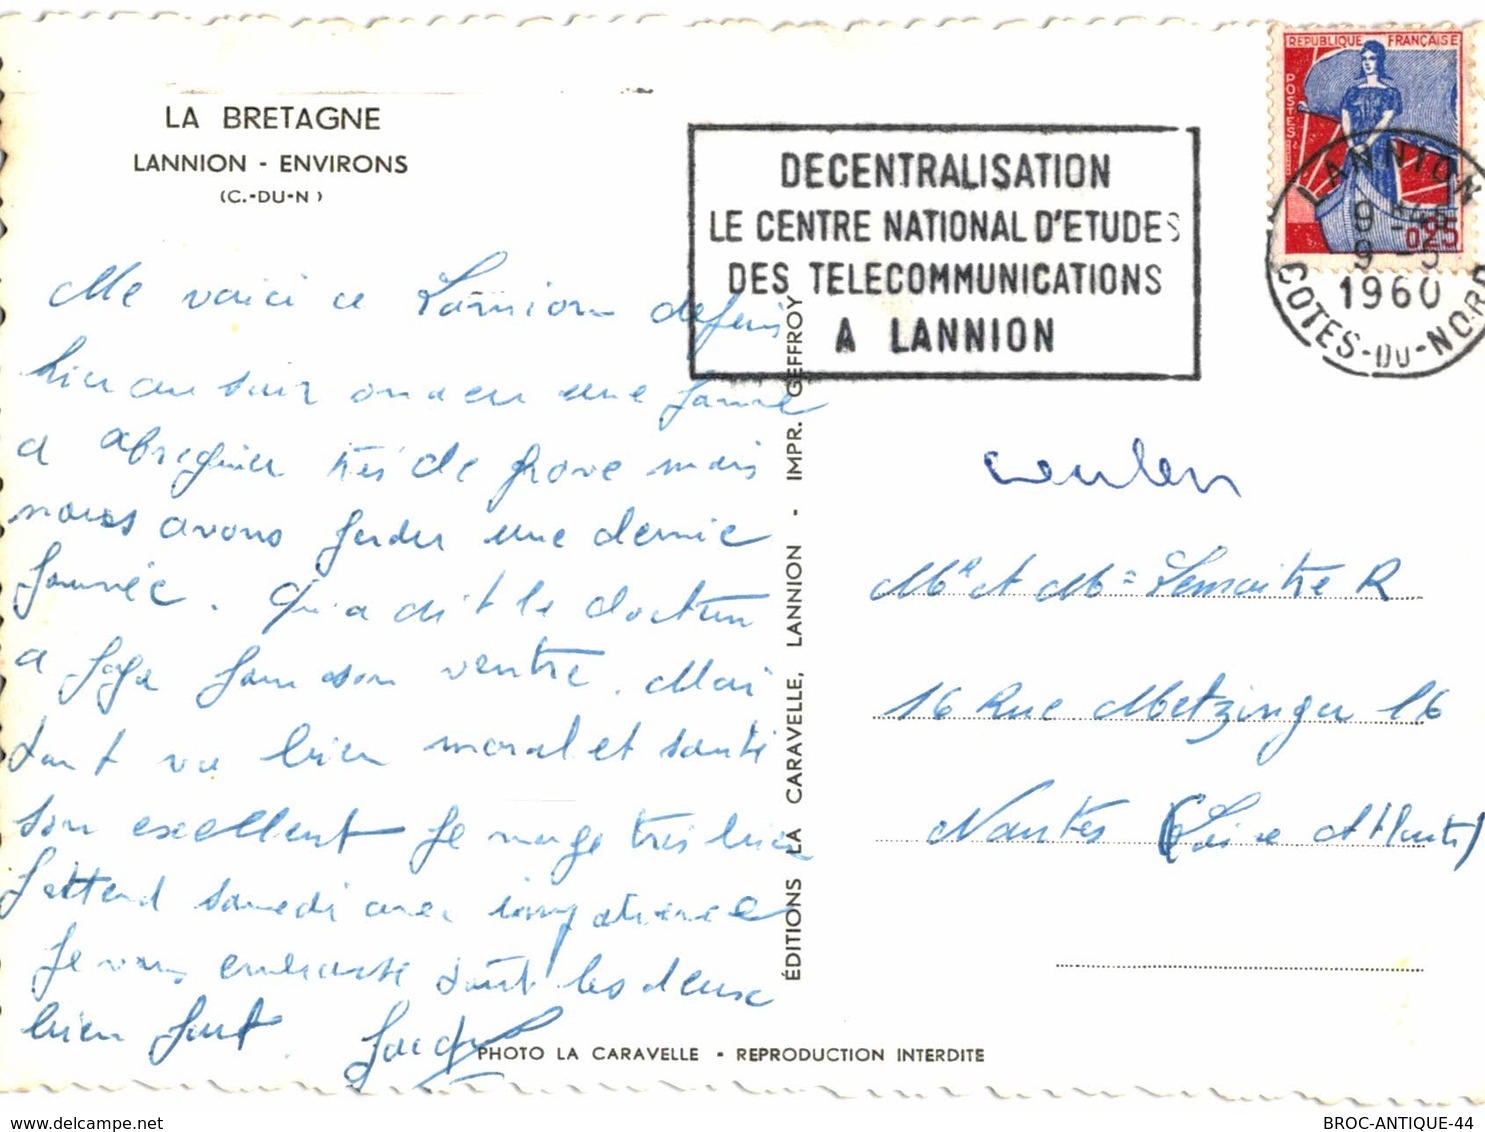 LA BRETAGNE
LANNION - ENVIRONS
(C.-DU-N)
REPUBLIQUE FRANÇAISE
POSTES
0,25
DECENTRALISATION
LE CENTRE NATIONAL D'ETUDES
DES TELECOMMUNICATIONS
A LANNION
LANNION
9-5
1960
COTES-DU-NORD
Me voici a Lannion depuis
hier au soir on a eu une panne
a très de grave mais
nous avons perdu une demie
journée. Qu'a dit le docteur
a pour son ventre. Moi
tout va bien moral et santé
son excellent je nage très bien
J'attend samedi avec impatience
Je vous embrasse tout les deux
bien fort.
ÉDITIONS LA CARAVELLE, LANNION - IMPR. GEFFROY
Mr et Me Lemaitre R
16 Rue Metzinger 16
Nantes (Loire Atlant)
PHOTO LA CARAVELLE - REPRODUCTION INTERDITE
www.delcampe.net
BROC-ANTIQUE-44